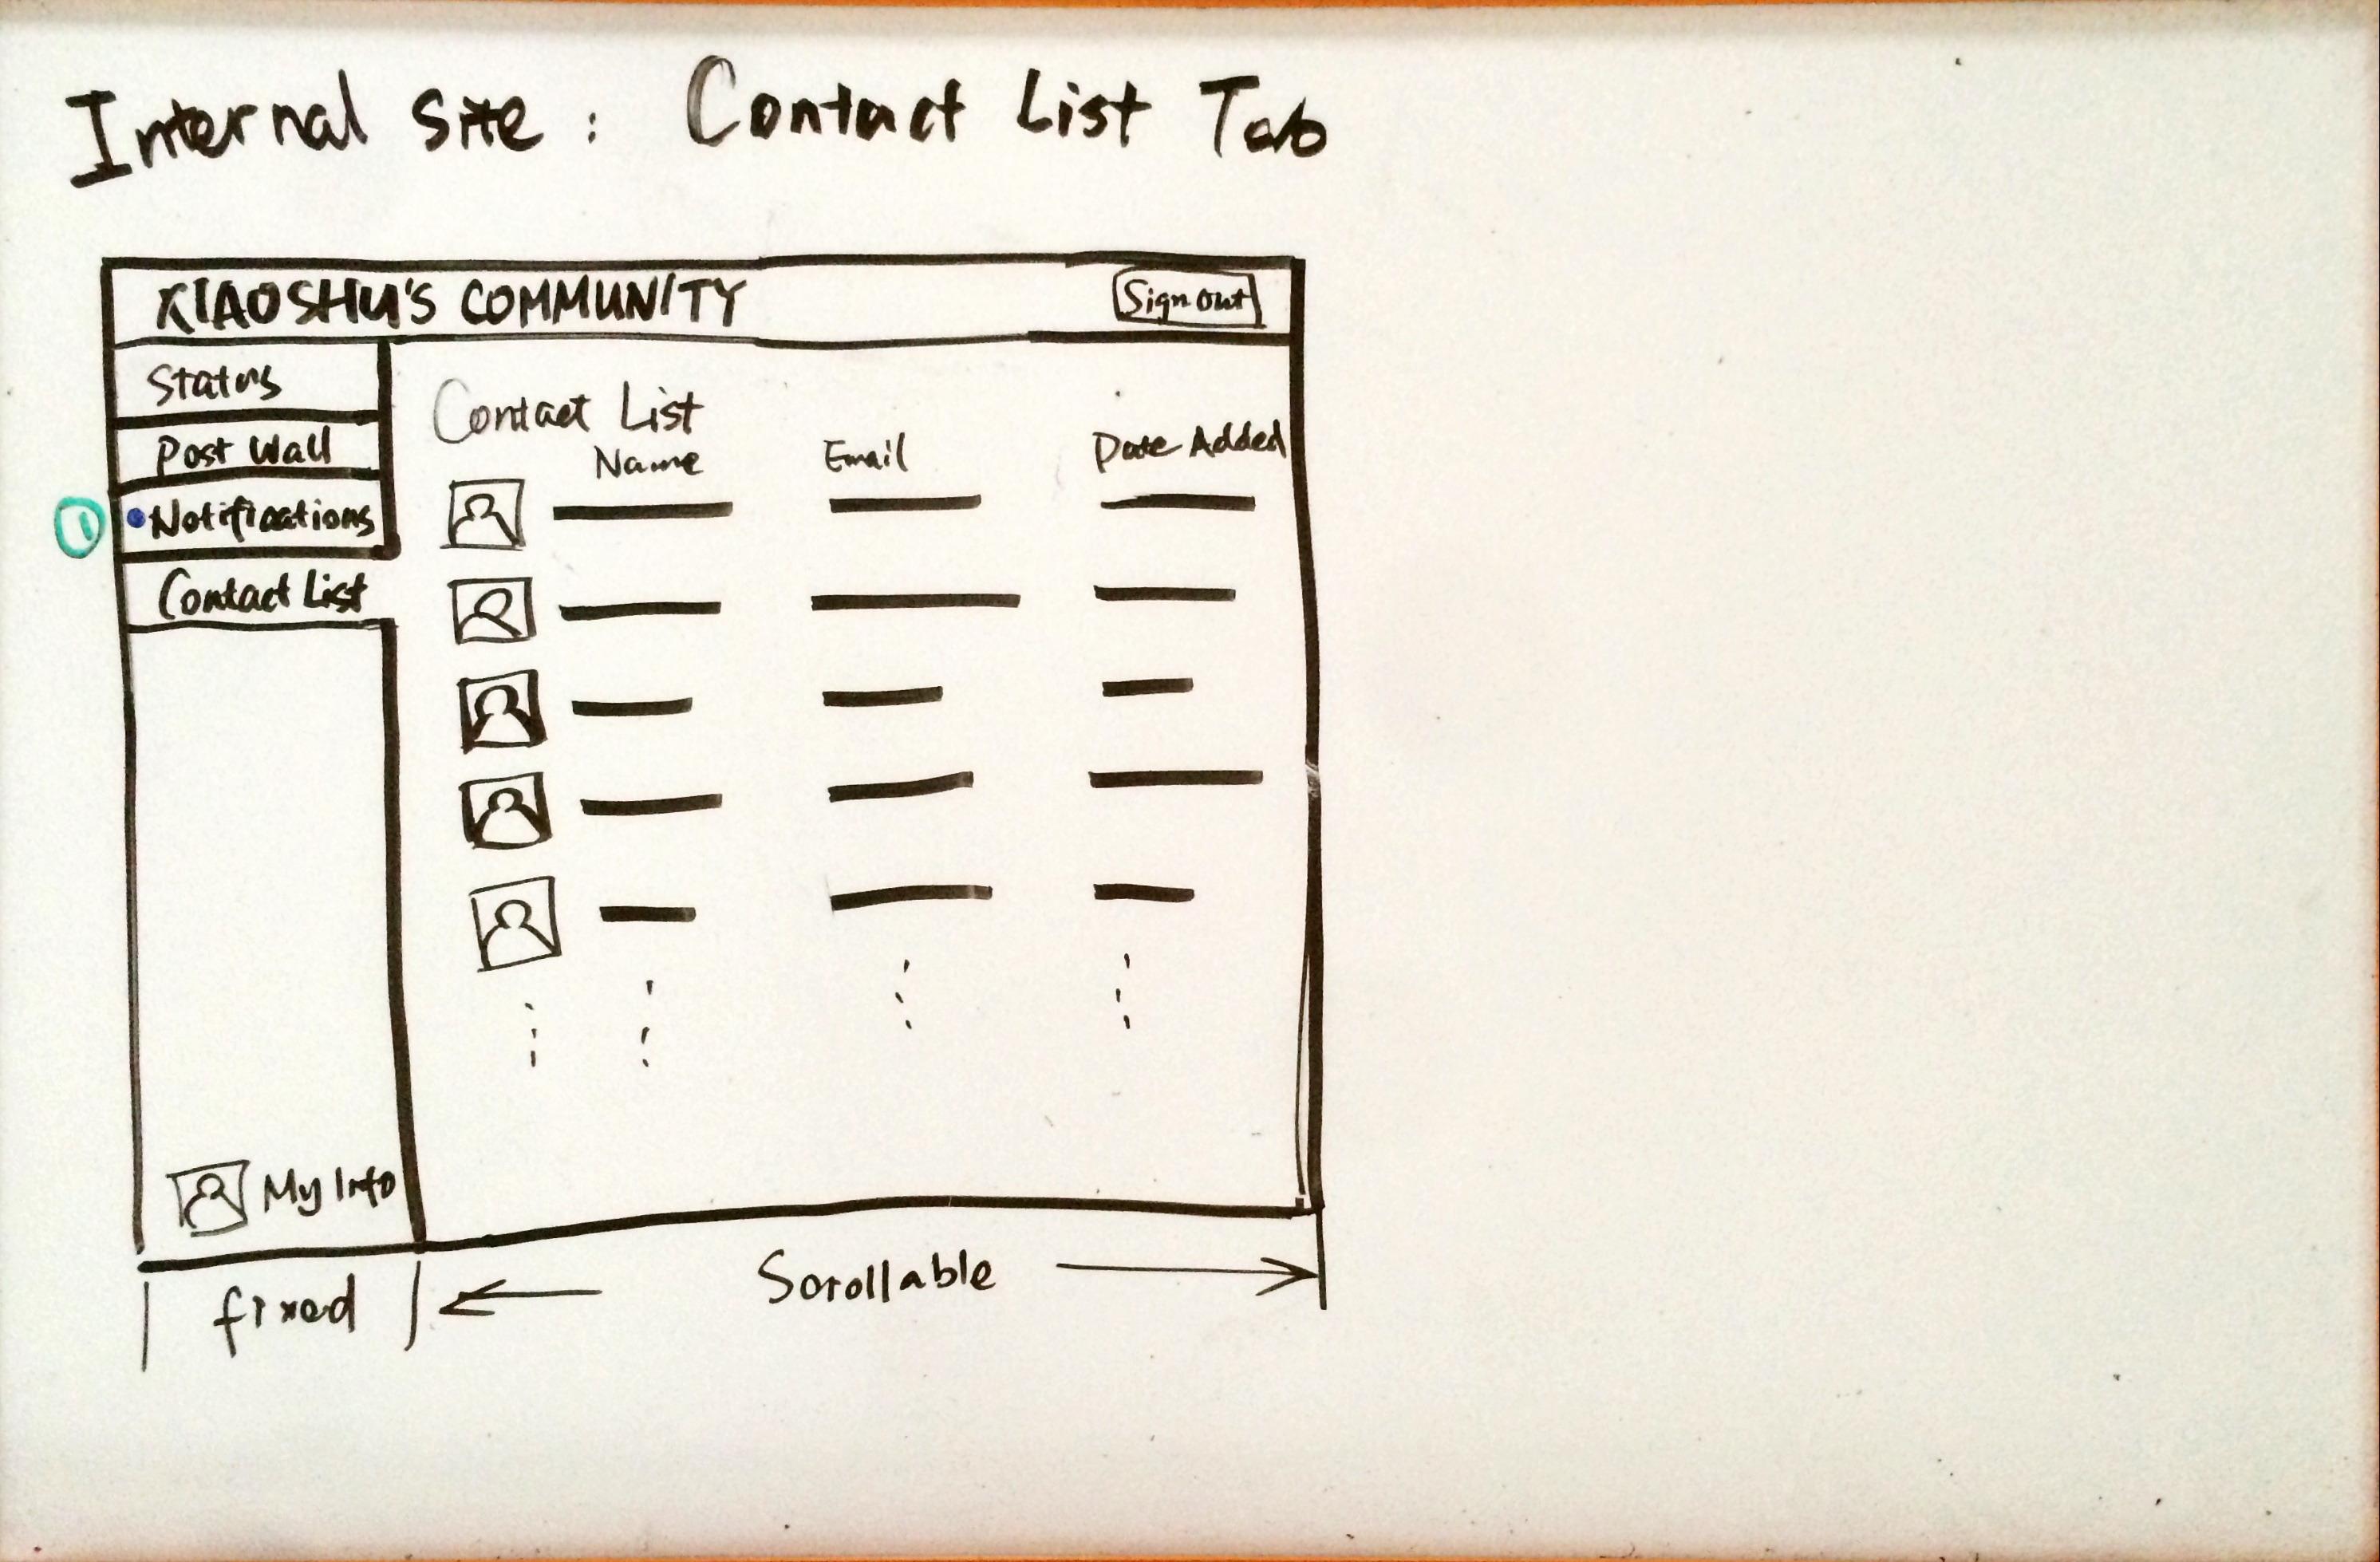 Internal Site: Contact List Tab
XIAOSHU'S COMMUNITY
Sign out
Status
Post Wall
1
Notifications
Contact List
My Info
Contact List
Name Email Date Added
fixed
Scrollable